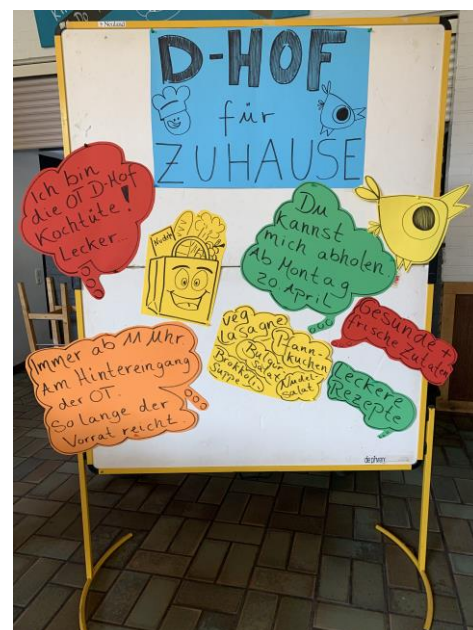 D-HOF
für
ZUHAUSE
Ich bin
die OT D-Hof
Kochtüte!
Lecker...
Du
kannst
mich abholen.
Ab Montag
20 April
Gesunde +
frische Zutaten
veg
Lasagne
Pfann-
kuchen
Bulgur
salat
Brokkoli
suppe
Nudel
salat
Leckere
Rezepte
Immer ab 11 Uhr
Am Hintereingang
der OT.
So lange der
Vorrat reicht.